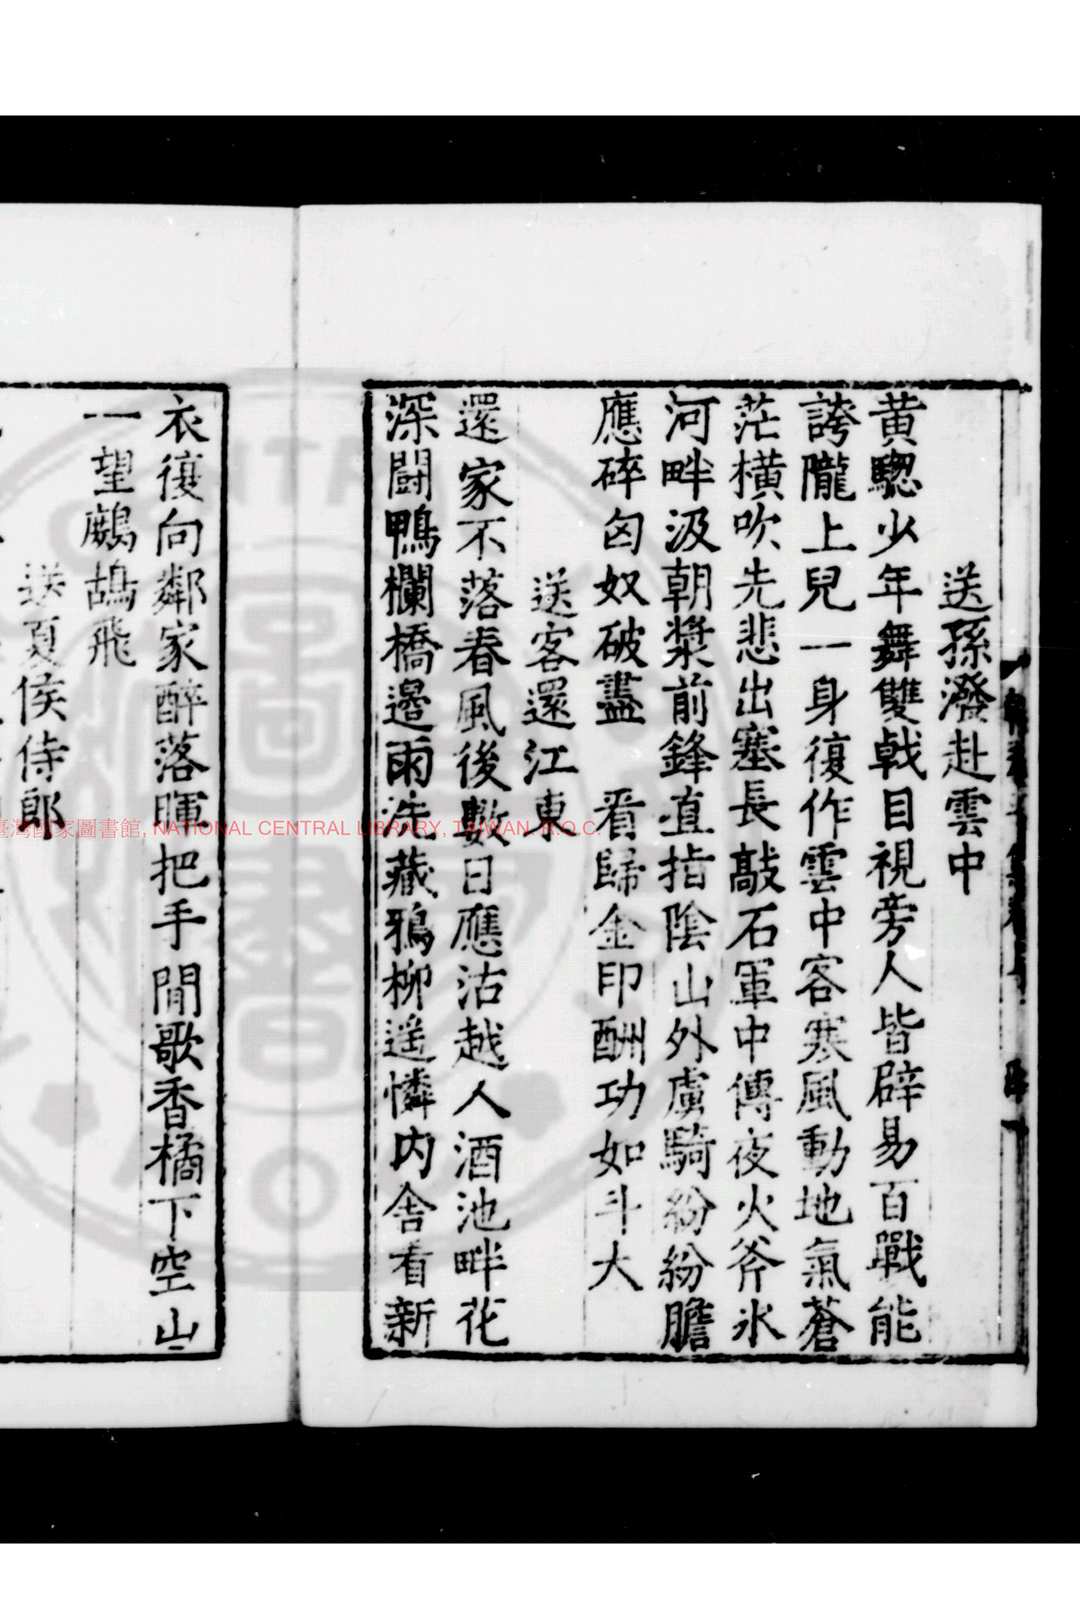 送孫潑赴雲中
黃驄少年舞雙戟目視旁人皆辟易百戰能
誇隴上兒一身復作雲中客寒風動地氣蒼
茫橫吹先悲出塞長敲石軍中傳夜火斧氷
河畔汲朝漿前鋒直指陰山外虜騎紛紛膽
應碎匈奴破盡看歸金印酬功如斗大
送客還江東
還家不落春風後數日應沽越人酒池畔花
深闘鴨欄橋邊雨洗藏鴉柳遥憐内舍着新
衣復向鄰家醉落暉把手閒歌香橘下空山
一望鷓鴣飛
送夏侯侍郎
臺灣國家圖書館, NATIONAL CENTRAL LIBRARY, TAIWAN, R.O.C.